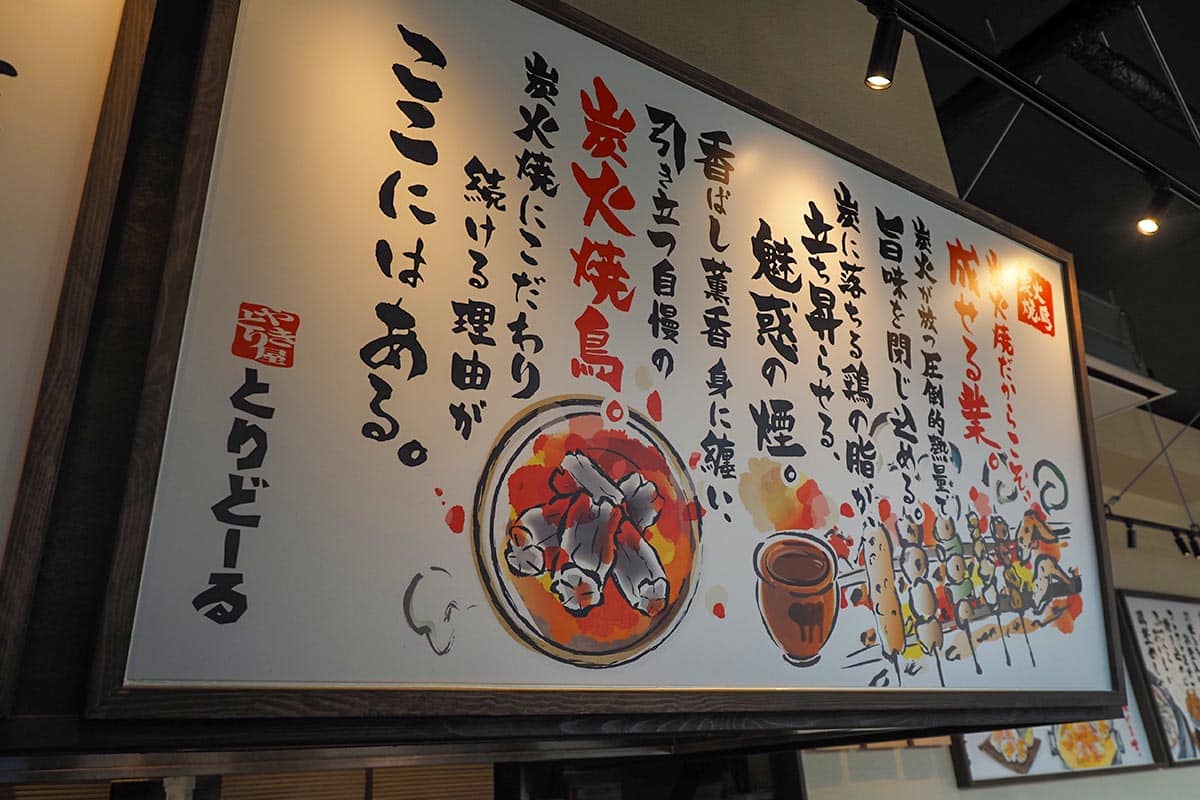 炭火焼鳥
炭火焼だからこそ、
成せる業。
炭火が放つ圧倒的熱量で
旨味を閉じ込める。
炭に落ちる鶏の脂が、
立ち昇らせる、
魅惑の煙。
香ばし薫香 身に纏い、
引き立つ自慢の
炭火焼鳥。
炭火焼にこだわり
続ける理由が
ここにはある。
やきとり屋
とりどーる